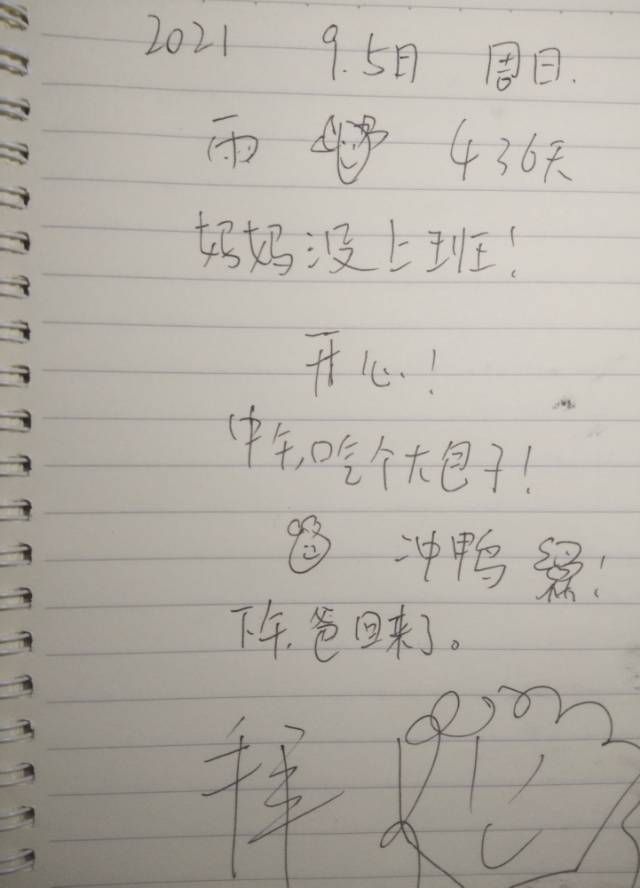 2021 9.5日 周日.
雨 436天
妈妈没上班！
开心.！
中午,吃个大包子！
冲鸭 ！
下午,爸回来了。
拜